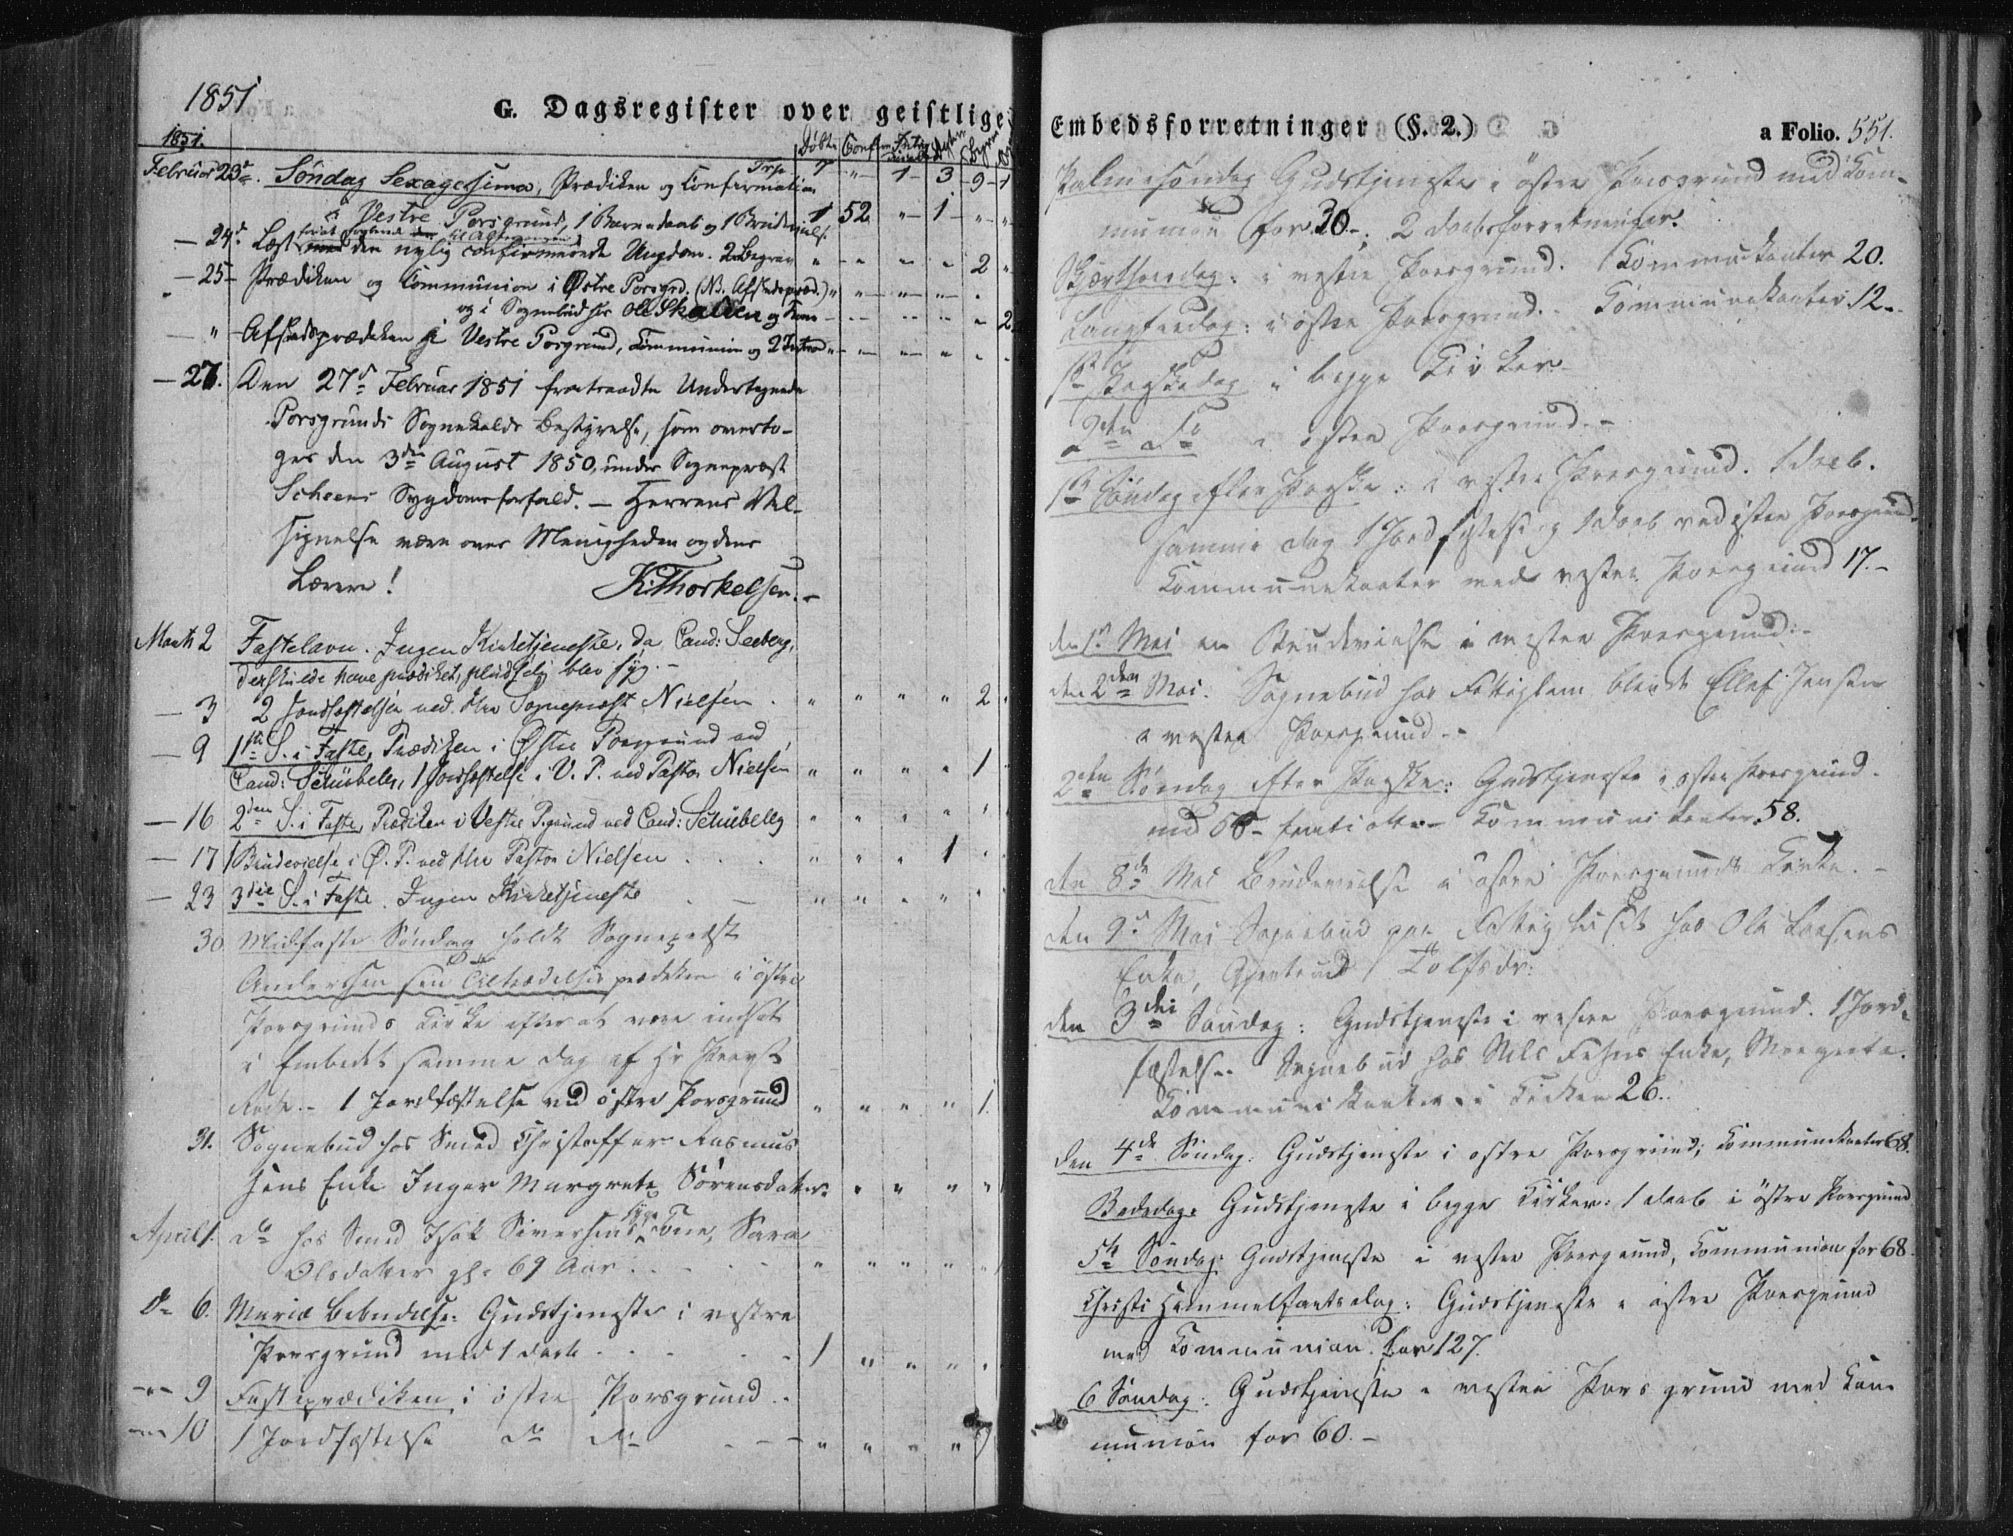 1851
G. Dagsregister over geistlige
1851.
Døbte Conf
Februar 23de. Søndag Sexagesima, Prædiken og Confirmation Trsp 7 " 1 3 9 1
i Vestre Porsgrund, 1 Barnedaab og 1 Brudevielse 1 52 " 1 " "
til Altergang
— 24de Læst den nylig confirmerede Ungdom. 2 Begrav " " " " 2 "
— 25 — Prædiken og Communion i Østre Porsgrd. (NB. Afskedspræd.)
og i Sognebud hos Ole Skalleen og Kone 2
— " Afskedsprædiken i Vestre Porsgrund, Communion og 2 Introd
— 27. Den 27de Februar 1851 fratraadte Undertegnede
Porsgrunds Sognekalds Bestyrelse, som overto-
ges den 3den August 1850, under Sognepræst
Scheens Sygdomsforfald. — Herrens Vel-
signelse være over Menigheden og dens
Lærere! K. Thorkelsen. —
Marts 2 Fastelavn. Ingen Kirketjeneste, da Cand: Seeberg,
der skulde have prædiket, pludselig blev syg. —
— 3 2 Jordfæstelser ved Hr Sognepræst Nielsen . " " " " 2 "
— 9 1ste S. i Faste, Prædiken i Østre Porsgrund ved
Cand: Schübeler, 1 Jordfæstelse i V. P. ved Pastor Nielsen " " " " 1
— 16 2den S. i Faste, Prædiken i Vestre Psgrund ved Cand: Schübeler " " " " "
— 17 1 Brudevielse i Ø. P. ved Hr Pastor Nielsen . . . " " " 1 "
— 23 3die S. i Faste. Ingen Kirketjeneste " " " " "
30 Midfaste Søndag holdt Sognepræst
Andersen sin Tiltrædelsesprædiken i østre
Porsgrunds Kirke efter at være indsat
i Embedet samme Dag af Hr Provst
Rode. — 1 Jordfæstelse ved østre Porsgrund " " " " 1.
31. Sognebud hos Smed Christoffer Rasmus-
sens Enke Inger Margrete Sørensdatter " " " "
April 1. do hos Smed Isak Siversens syge Kone, Sara
Olsdatter gl. 69 Aar . . . . " " " " "
do 6. Mariæ Bebudelse. Gudstjeneste i vestre
Porsgrund med 1 Daab . . . . 1 " " " "
— " — 9 Fasteprædiken i østre Porsgrund. —
10 1 Jordfæstelse do do — — " " " "
Embedsforretninger (§. 2.)
a Folio. 551.
Palmesøndag Gudstjeneste i østre Porsgrund med Com-
munion for 30 —; 2 Daabsforretninger.
Skjærthorsdag: i vestre Porsgrund. Kommunikanter 20.
Langfredag: i østre Porsgrund. Kommunikanter 12. —
1ste Paaskedag i begge Kirker —
2den do i østre Porsgrund. —
1ste Søndag efter Paaske: i vestre Porsgrund. 1 Daab.
samme Dag 1 Jordfæstelse og 1 Daab ved østre Porsgrund.
Kommunikanter ved vestre Porsgrund 17. —
den 1ste Mai en Brudevielse i vestre Porsgrund. —
den 2den Mai. Sognebud hos Fattiglem blinde Ellef Jensen
i vestre Porsgrund. —
2den Søndag efter Paaske: Gudstjeneste i østre Porsgrund.
med 58 — femti otte — Kommunikanter 58.
den 8de Mai Brudevielse i østre Porsgrunds Kirke. —
den 9de Mai Sognebud paa Fattighuset hos Ole Larsens
Enke, Gjertrud Tolfsdr:
den 3die Søndag: Gudstjeneste i vestre Porsgrund. 1 Jord-
fæstelse. Sognebud hos Nils Enke, Margrete.
Kommunikanter i Kirken 26.
den 4de Søndag: Gudstjeneste i østre Porsgrund; Kommunikanter 68.
Bededag: Gudstjeneste i begge Kirker: 1 Daab i østre Porsgrund
5te Søndag: Gudstjeneste i vestre Porsgrund, Kommunion for 68.
Christi Himmelfartsdag: Gudstjeneste i østre Porsgrund
med Kommunion for 127.
6 Søndag: Gudstjeneste i vestre Porsgrund med Kom-
munion for 60. —